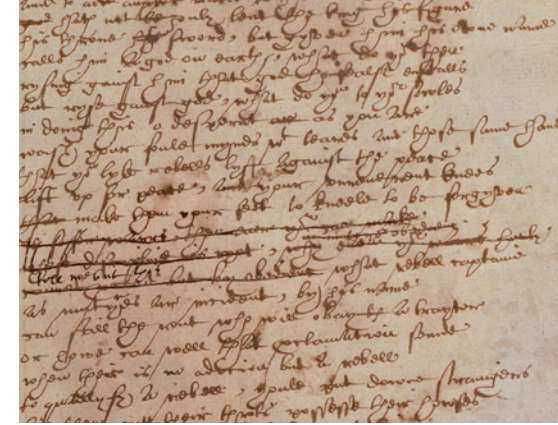 and to add ampler matie to this
god hath not le only lent the king his figure
his throne his sword, but gyven him his owne name
calls him a god on earth, what do yu then
rysing gainst him that god himsealf enstalls
but ryse gainst god, what do yu to yor sowles
in doing this o desperat ar as you are
wash your foule mynds wt teares and those same hand
that yu lyke rebells lyft against the peace
lift up for peace, and your unreverent knees
that make them your feet to kneele to be forgyven
is safer warrs, then ever yu can make
in in to yor obedienc
whose discipline is ryot, why even yor warrs hurly
tell me but this
cannot proceed but by obedienc what rebell captaine
as mutynes ar incident, by his name
can still the rout who will obay a traytor
or howe can well that proclamation sounde
when ther is no adicion but a rebell
to quallyfy a rebell, youle put downe straingers
kill them cutt their throts possesse their howses